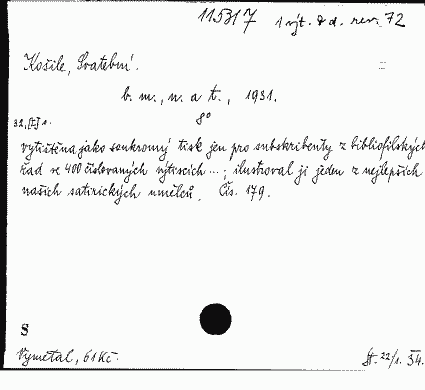 115317 1 výt. & d. rev. 72
Košile, Svatební.
b. m., n. a t., 1931.
8°
32, [I] s.
vytištěna jako soukromý tisk jen pro subskribenty z bibliofilských
řad ve 400 číslovaných výtiscích ...; ilustroval ji jeden z nejlepších
našich satirických umělců. Čís. 179.
S
Vymetal, 61 Kč.
St. 22/1. 34.